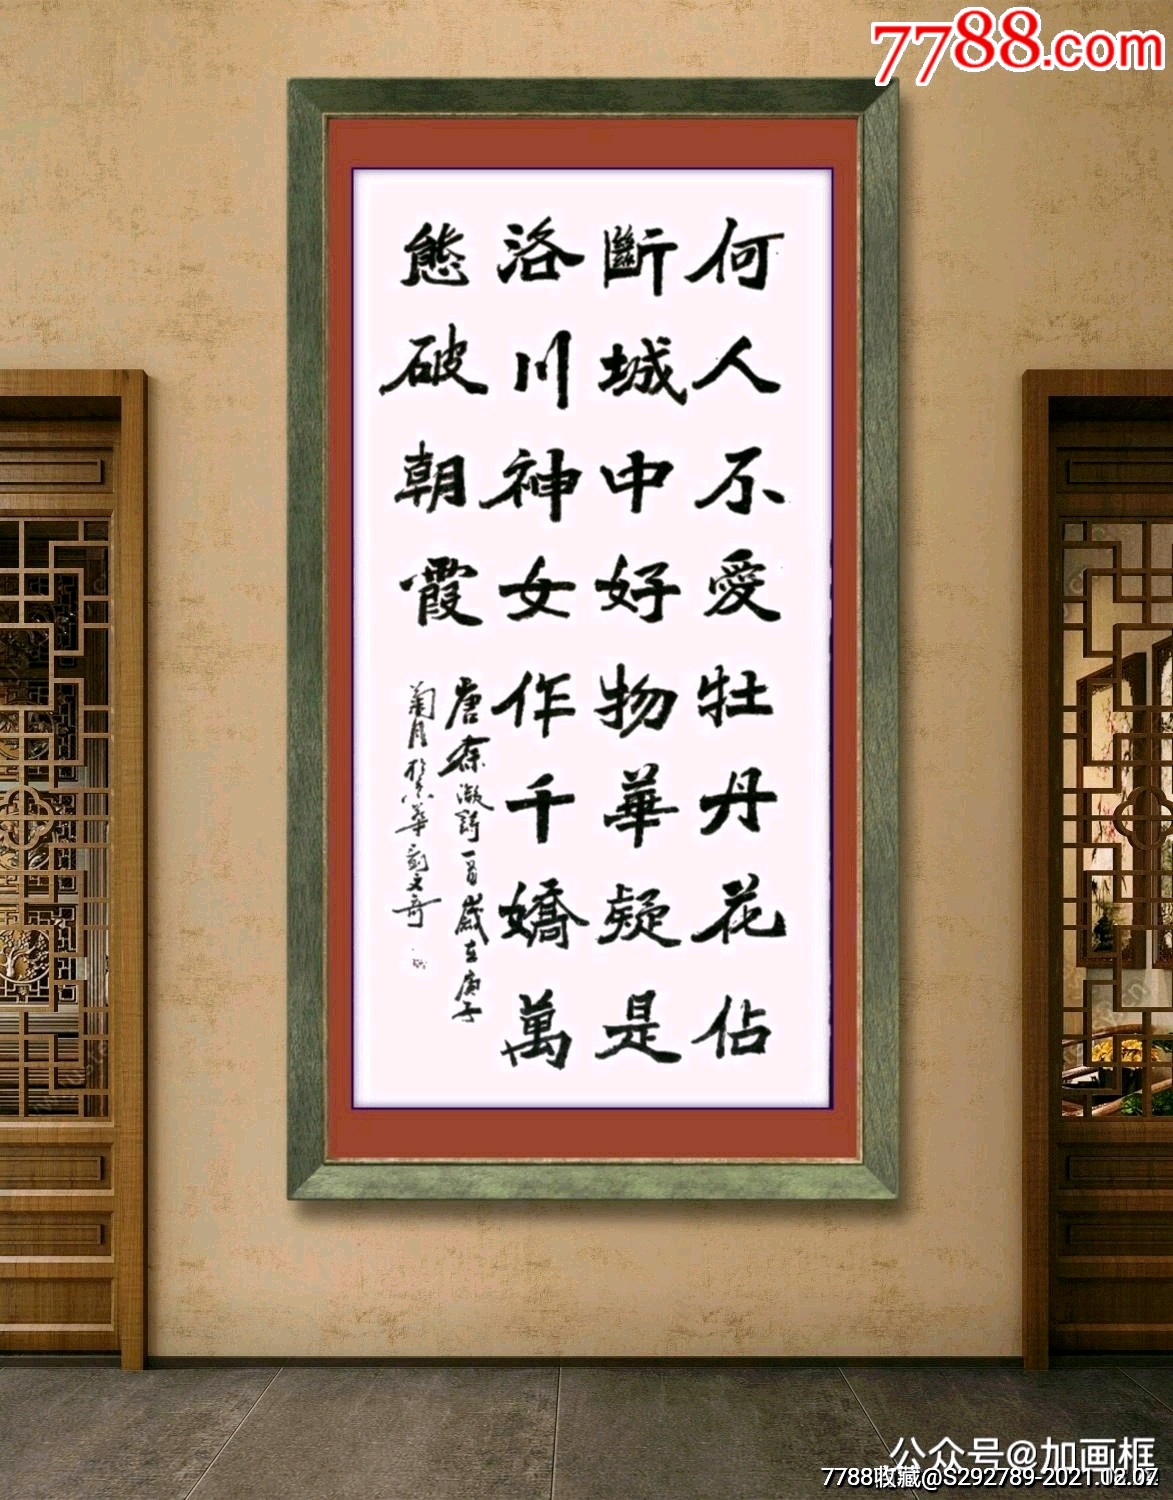 7788.com
何人不愛牡丹花佔
斷城中好物華疑是
洛川神女作千嬌萬
態破朝霞
唐徐凝詩一首歲在庚子
菊月於京華劉文奇
公众号@加画框
7788收藏@S292789-2021.12.07